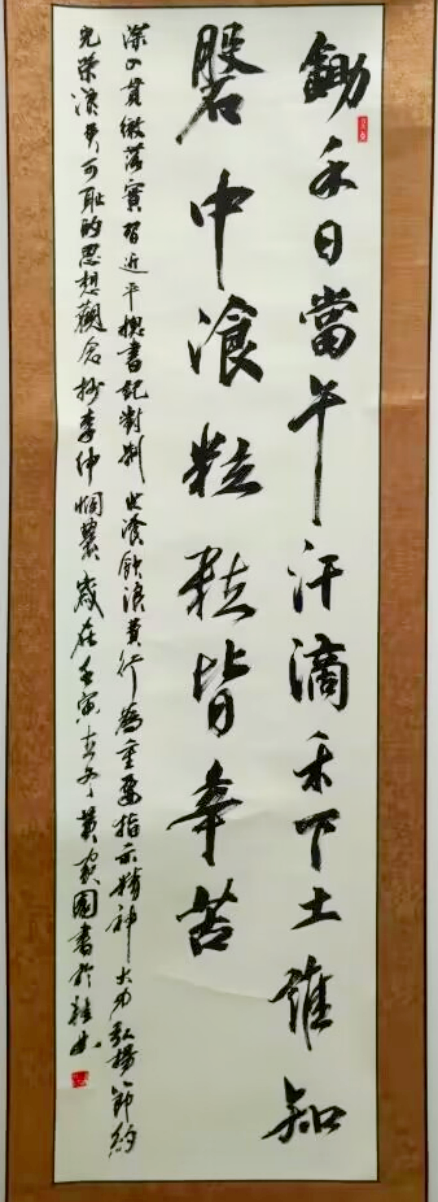 鋤禾日當午汗滴禾下土誰知
磐中湌粒粒皆辛苦
深入貫徹落實習近平總書記對制止湌飲浪費行為重要指示精神大力弘揚節約
光榮浪費可耻的思想觀念抄李紳憫農歲在壬寅立冬黃國書於